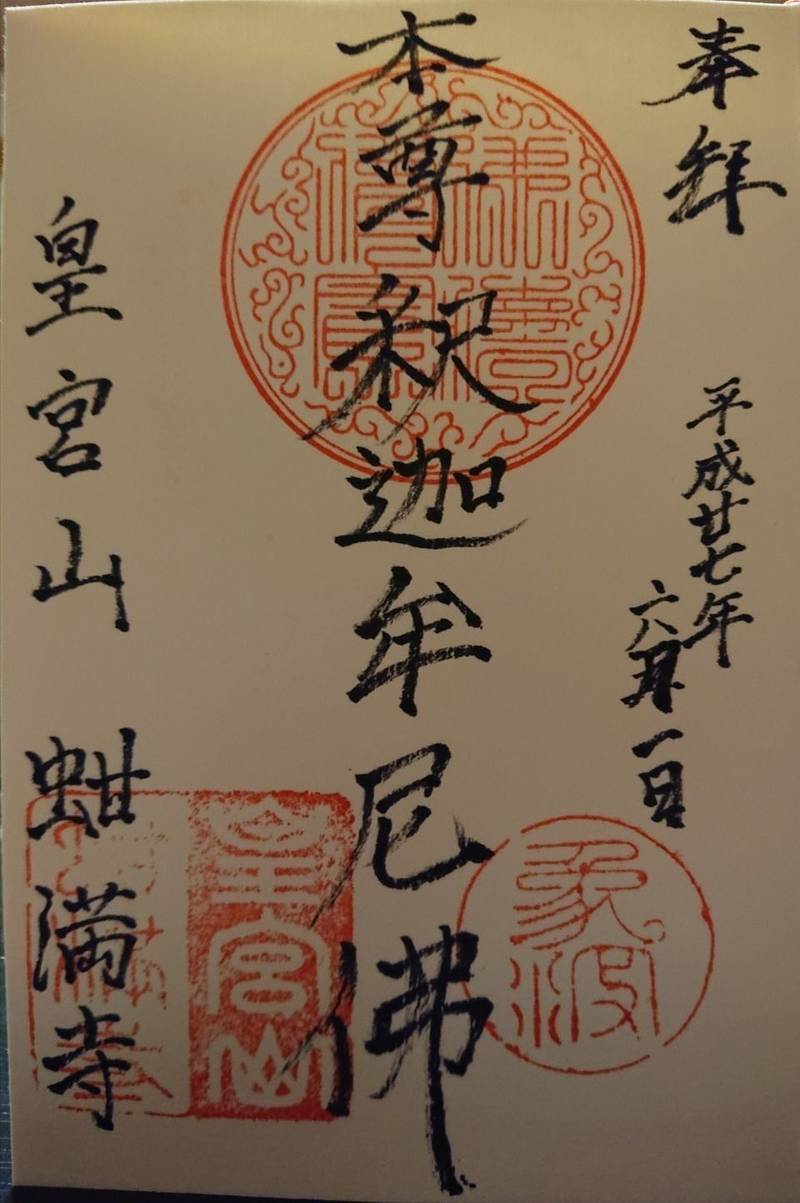 奉拜
平成廿七年
六月一日
本尊釈迦牟尼佛
皇宮山 蚶満寺
象潟
皇宮山